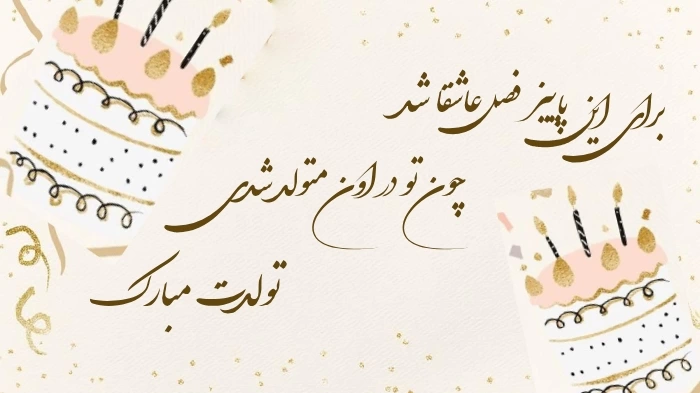 برای این پاییز فصل عاشقا شد
چون تو در اون متولد شدی
تولدت مبارک